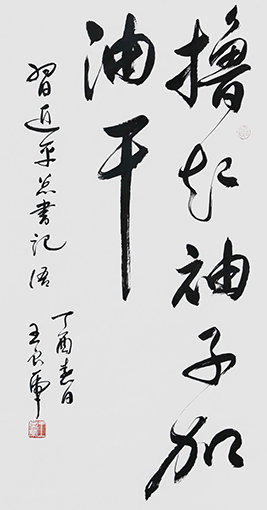 撸起袖子加
油干
习近平总书记语
丁酉春日
王良虎